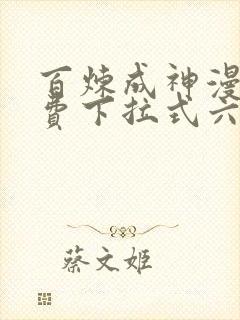 百炼成神漫
费下拉式六
蔡文姬